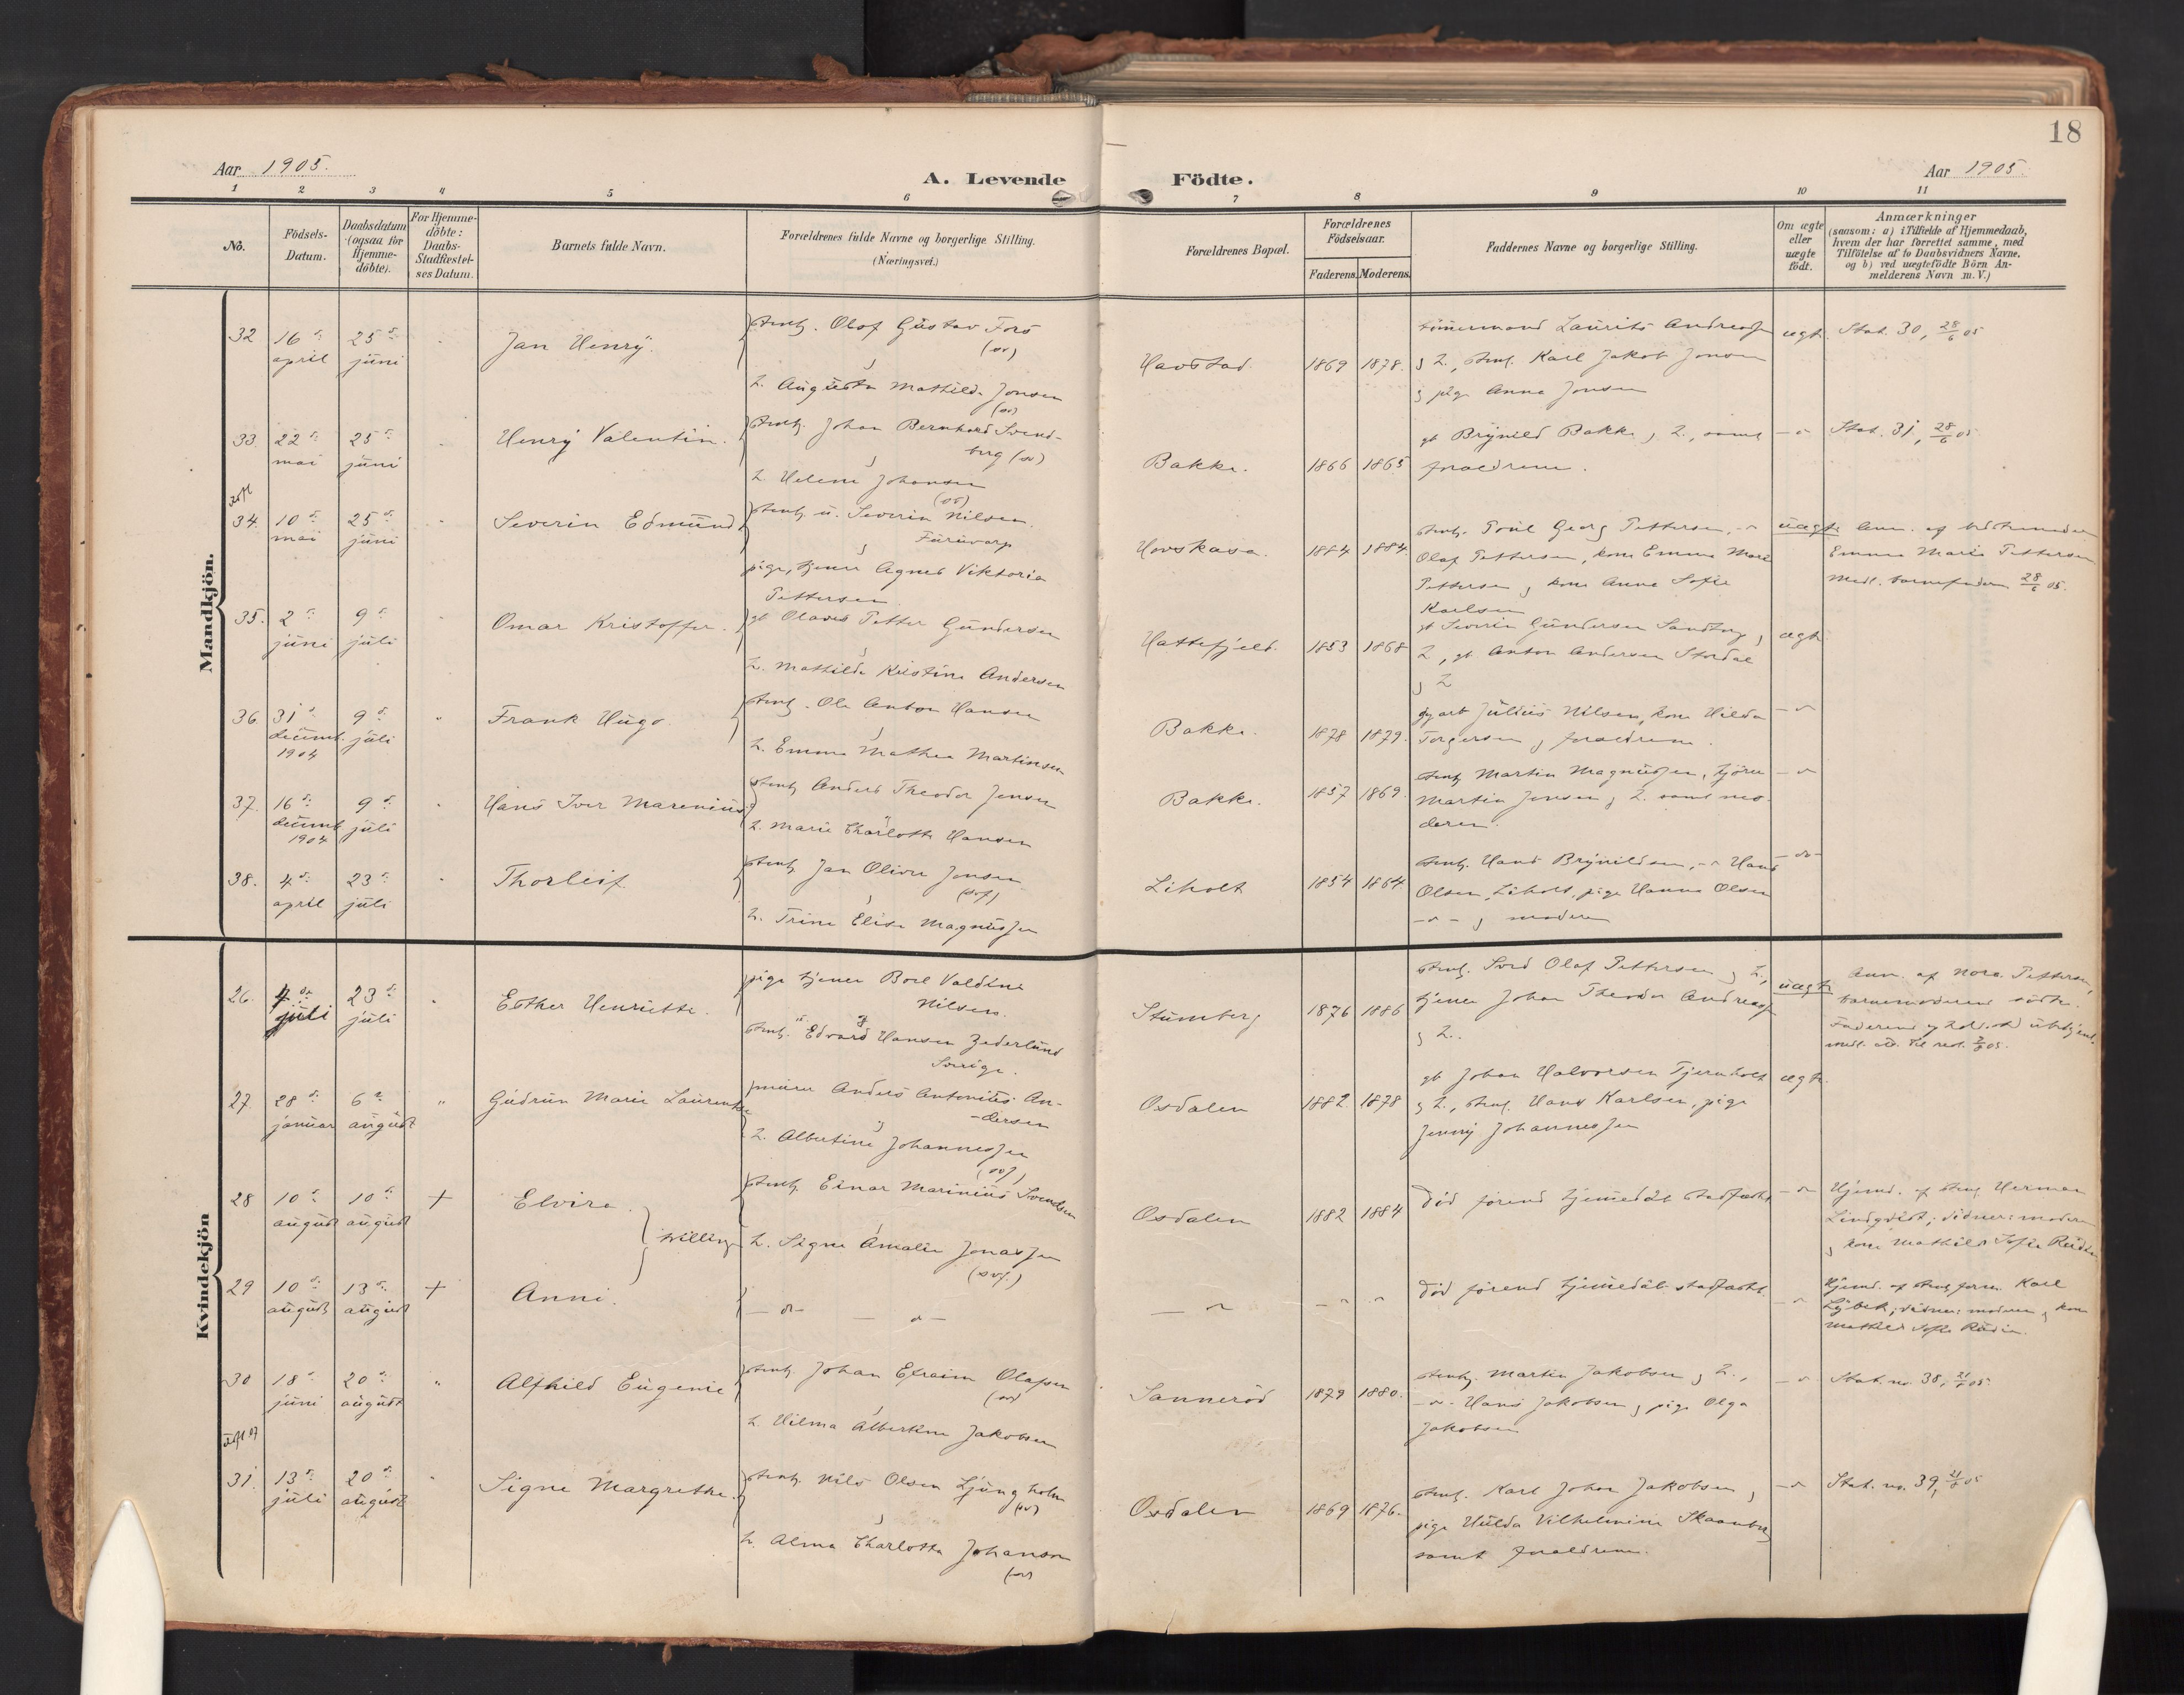 18
Aar 1905.
A. Levende Födte.
Aar 1905.
1 2 3 4 5 6 7 8 9 10 11
No.
Födsels-
Datum.
Daabsdatum
(ogsaa for
Hjemme-
döbte).
For Hjemme-
döbte:
Daabs-
Stadfæstel-
ses Datum.
Barnets fulde Navn.
Forældrenes fulde Navne og borgerlige Stilling.
(Næringsvei.)
Forældrenes Bopæl.
Forældrenes
Födselsaar.
Faderens. Moderens.
Faddernes Navne og borgerlige Stilling.
Om ægte
eller
uægte
födt.
Anmærkninger
(saasom: a) i Tilfælde af Hjemmedaab,
hvem der har forrettet samme, med
Tilföielse af to Daabsvidners Navne,
og b) ved uægtefödte Börn An-
melderens Navn m.V.)
Mandkjön.
32 16 april 25 juni
Jan Henry.
stenh. Olof Gustav Fors
(sv)
h. Augusta Mathilde Jonsen
(sv)
Havstad 1869 1878.
tömmermand Laurits Andreas
& h., stenh. Karl Jakob Jonsen
& pige Anna Jonsen
ægte Stat. 30, 28/6 05
33. 22 mai 25 juni
Henry Valentin.
stenh. Johan Bernhard Svend-
berg (sv)
h. Helene Johansen
(sv)
Bakke. 1866 1865
gb Brynild Bakke & h., samt
forældrene.
Stat. 31, 28/6 05
34. 10 mai 25 juni
Severin Edmund
stenh. u. Severin Nilsen.
Furuvarp
pige, tjener Agnes Viktoria
Pettersen
Hovskasa. 1884 1884.
stenh. Poul Georg Pettersen,
Olaf Pettersen, kone Emma Marie
Pettersen & kone Anna Sofie
Karlsen
uægte
Emma Marie Pettersen
Medl. barnefaderen 28/6 05.
35. 2 juni 9 juli
Omar Kristoffer.
gb Olaves Petter Gundersen
h. Mathilde Kristine Andersen
Hattefjeld. 1853 1868
gb Severin Gundersen Sandtorg &
h, gb. Anton Andersen Stordal
& h
ægte
36. 31 decemb. 1904 9 juli
Frank Hugo.
stenh. Ole Anton Hansen
h. Emma Mathea Martinsen
Bakke. 1878 1879.
Julius Nilsen, kone Hilda
Torgersen & forældrene.
37. 16 decemb 1904 9 juli
Hans Iver Marenius
stenh Anders Theodor Jensen
h. Marie Charlotte Hansen
Bakke. 1857 1869.
stenh Martin Magnussen,
Martin Jensen & h. samt mo-
deren.
38. 4 april 23 juli
Thorleif
stenh Jan Oliver Jensen
h. Trine Elise Magnussen
Liholt 1854 1864.
stenh. Hans Brynildsen, Hans
Olsen, Liholt, pige Hanna Olsen
& moderen
Kvindekjön
26. 4 juli 23 juli
Esther Henriette.
pige tjener Boel Valdine
Nilsen.
stenh. Edvard Hansen Zederlund
Sverige.
Stumberg 1876 1886
stenh. Sved Olaf Pettersen & h.,
tjener Johan Theodor Andreas
& h.
uægte
Ann. af Nora Pettersen,
barnemoderens söster.
27. 28 januar 6 august
Gudrun Marie Laurentze
murer Anders Antonius An-
dersen
h. Albertine Johannessen
Osdalen 1882. 1878
gb Johan Halvorsen Tjernholt
& h., stenh. Hans Karlsen, pige
Jenny Johannessen
ægte.
28 10 august 10 august +
Elvira.
tvilling
stenh. Einar Marinius Svendsen
h. Signe Amalie Jonassen
(svf.)
Osdalen 1882 1884
Död förend hjemedåb stadfæstet
Hjemd. af stenh Herman
Lindqvist; vidner: moderen
& kone Mathilde Sofie
29 10 august 13 august +
Anni.
Död förend hjemedåb stadfæstet.
Hjemd. af Karl
Lybek; vidner: moderen & kone
Mathilde Sofie
30 18 juni 20 august
Alfhild Eugenie
stenh. Johan Efraim Olafsen
(sv)
h. Hilma Albertine Jakobsen
Sannerød 1879 1880.
stenhg. Martin Jakobsen & h.,
Hans Jakobsen & pige Olga
Jakobsen
Stat. no. 38, 21/8 05.
31. 13 juli 20 august
Signe Margrethe.
stenh. Nils Olsen Ljungholm
(sv)
h. Alma Charlotta Johanson
(sv)
Osdalen 1869 1876.
stenh. Karl Johan Jakobsen &
pige Hulda Vilhelmine Skaanberg
samt forældrene.
Stat. no. 39, 21/8 05